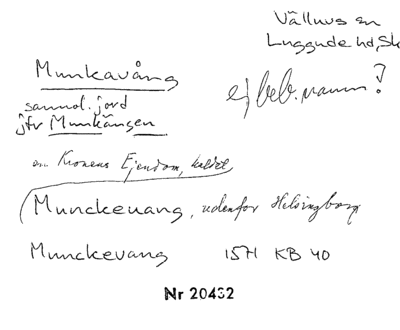 Välluvs sn
Luggude hd, Sk
Munkavång
ej beb.namn?
sannol. jord
jfr Munkängen
en Kronens Ejendom, kaldet
Munckeuang, udenfor Helsingborg
Munckevang 1571 KB 40
Nr 20432